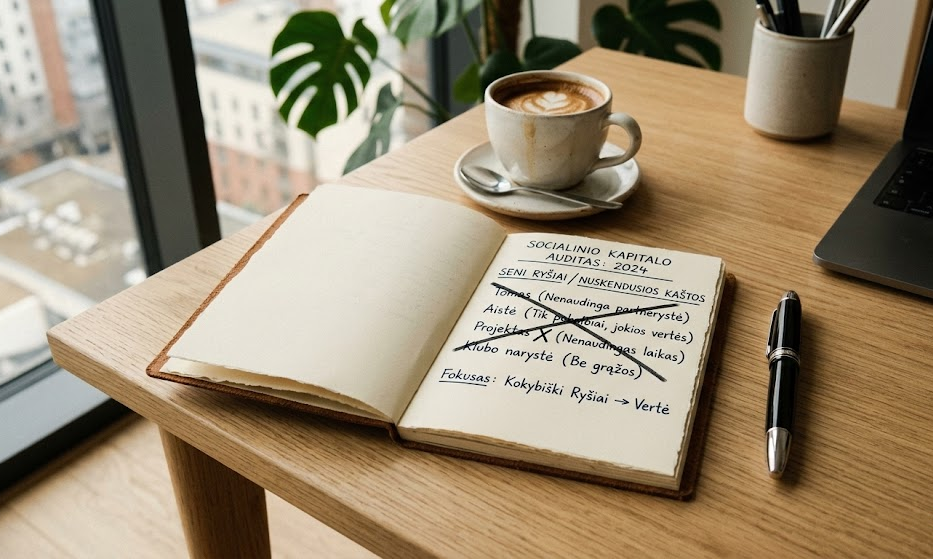 SOCIALINIO KAPITALO
AUDITAS: 2024
SENI RYŠIAI / NUSKENDUSIOS KAŠTOS
Tomas (Nenaudinga partnerystė)
Aistė (Tik pokalbiai, jokios vertės)
Projektas X (Nenaudingas laikas)
Klubo narystė (Be grąžos)
Fokusas: Kokybiški Ryšiai → Vertė